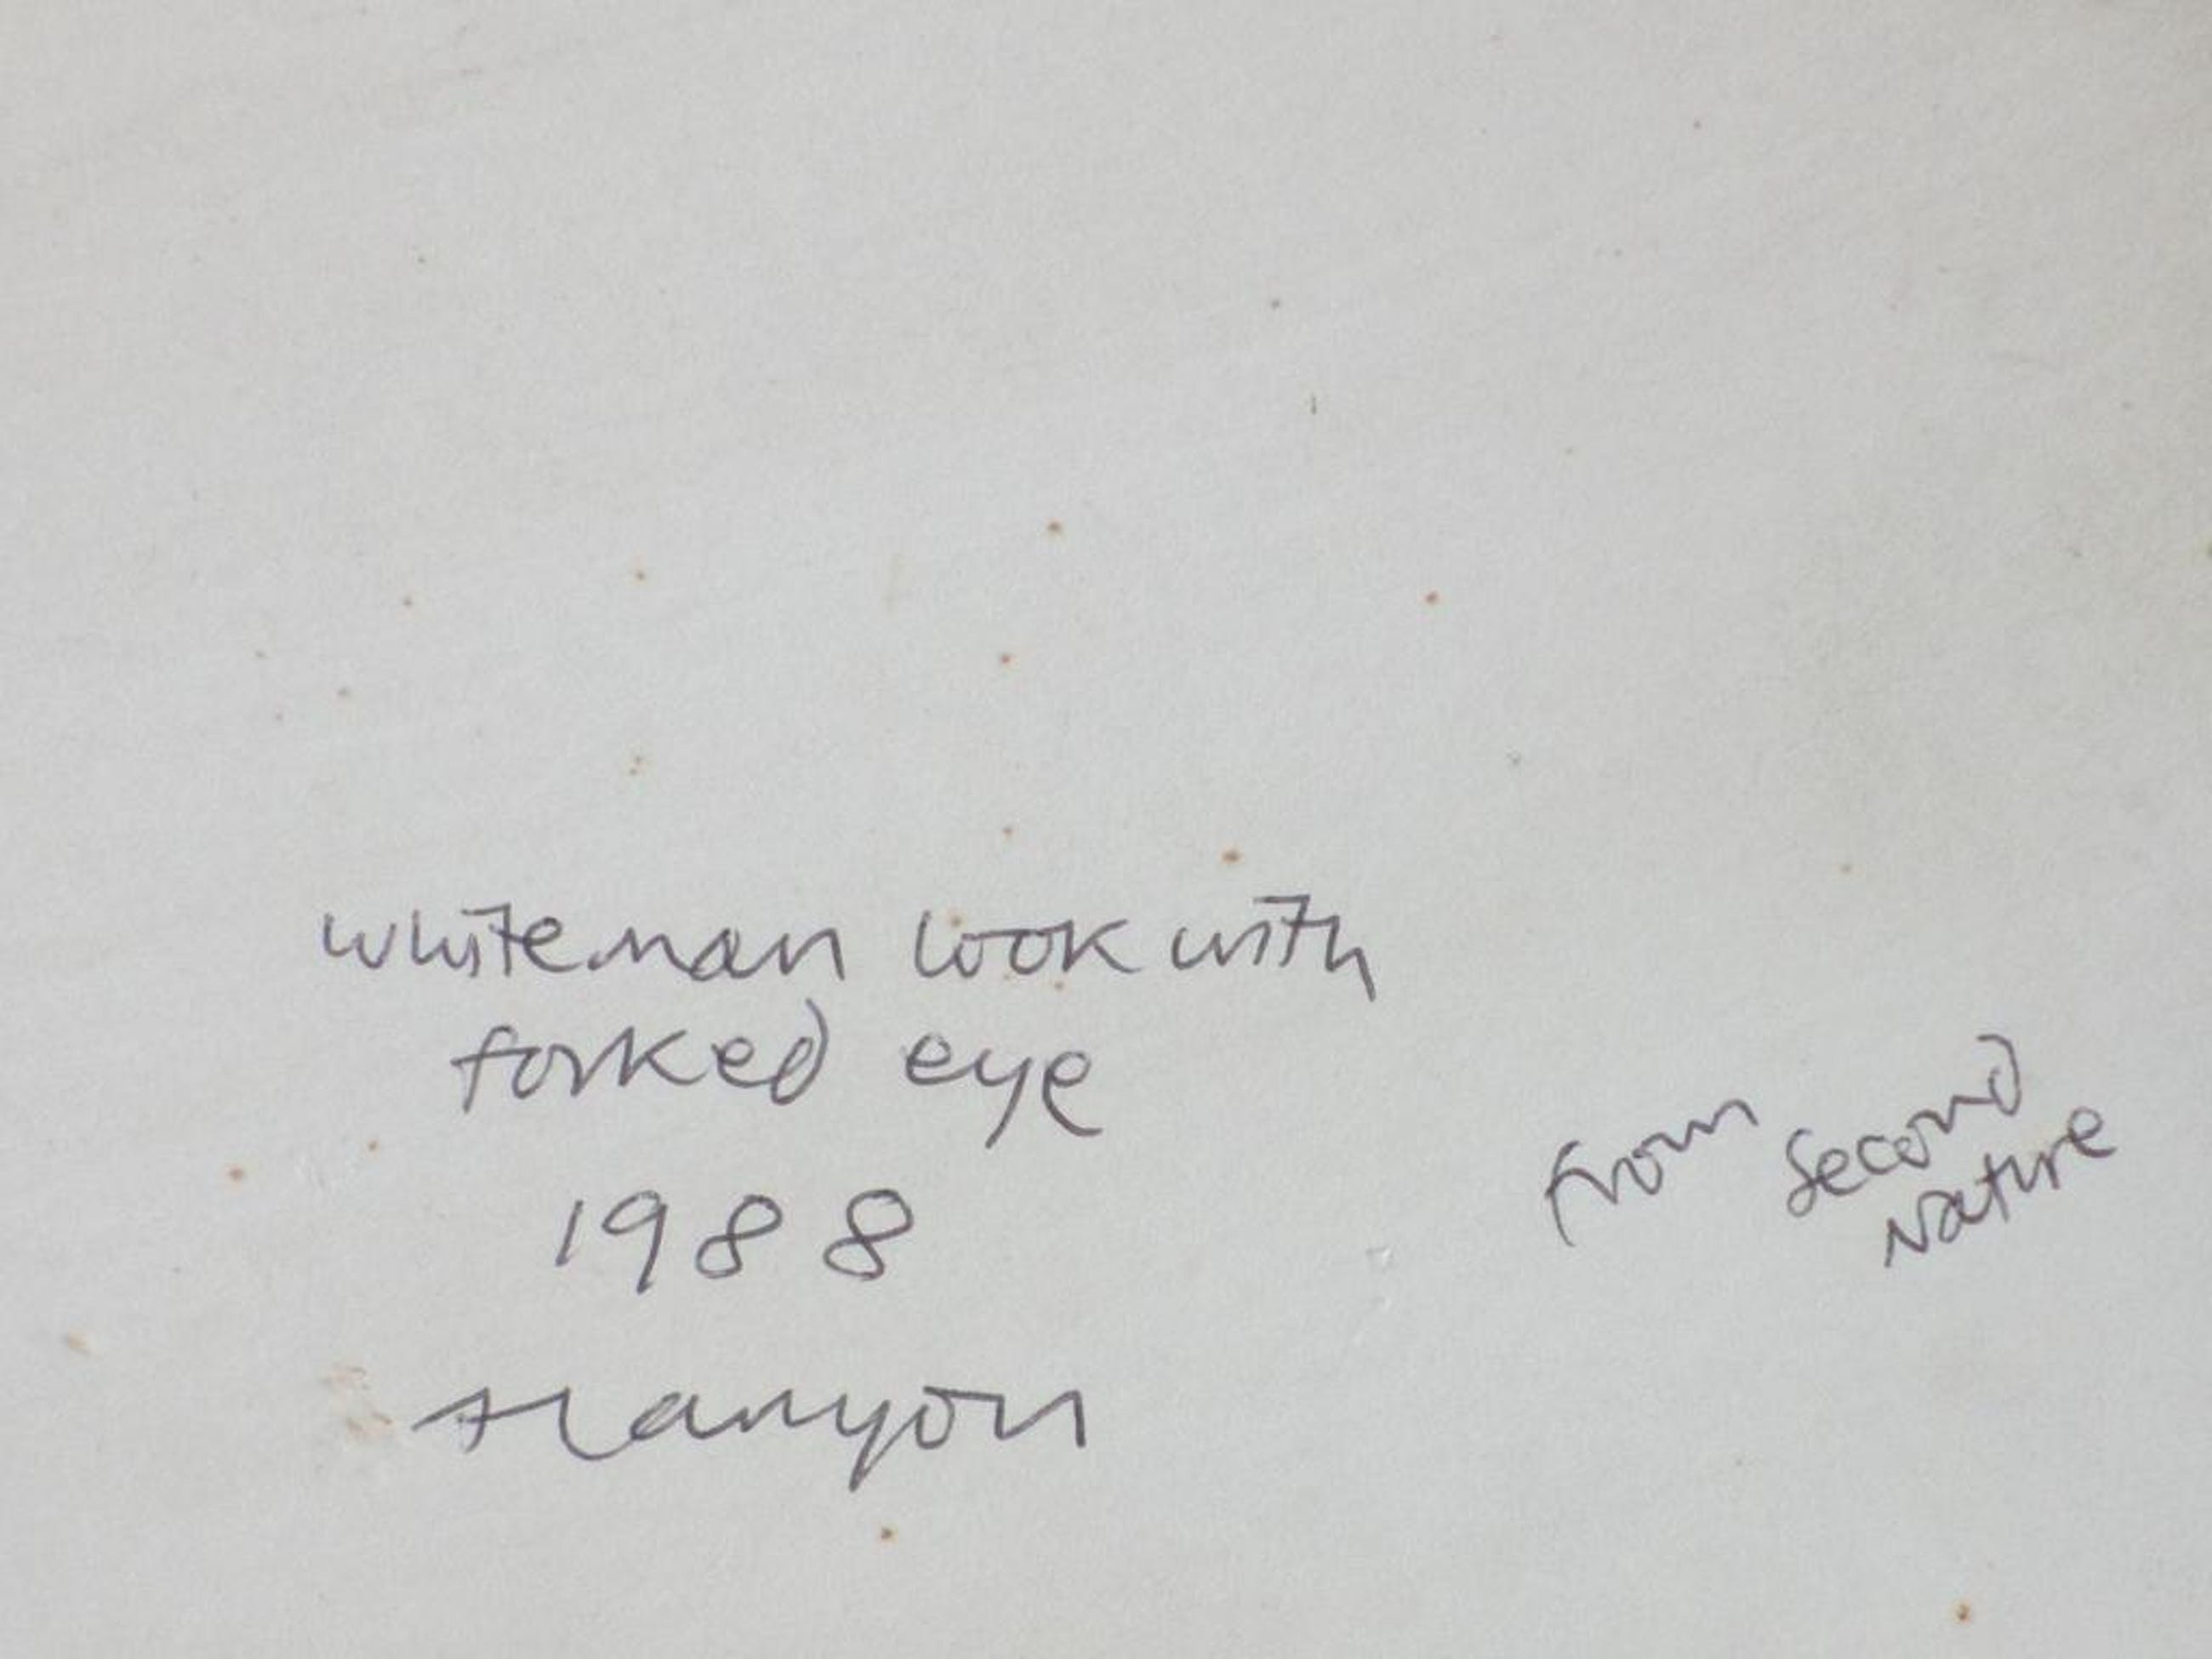 whiteman look with
forked eye
1988
Lanyon
from second
nature